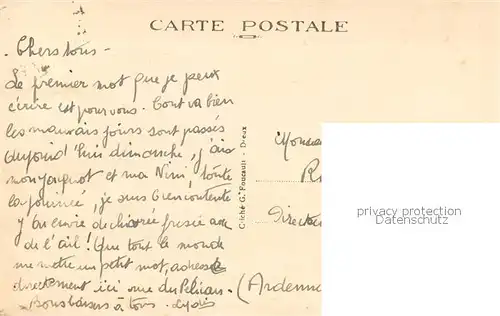 CARTE POSTALE
- Chers tous -
Le premier mot que je peux
écrire est pour vous. Tout va bien
les mauvais jours sont passés
aujourd'hui dimanche, j'ai
mon et ma Nini, toute
la journée, je suis bien contente
y'ai envie de chicorée frisée avec
de l'ail! Que tout le monde
me mette un petit mot, adressé
directement ici rue du Pélican.
bons baisers à tous.
Cliché G. Foucault - Dreux
Monsieur
Directeur
(Ardennes
privacy protection
Datenschutz